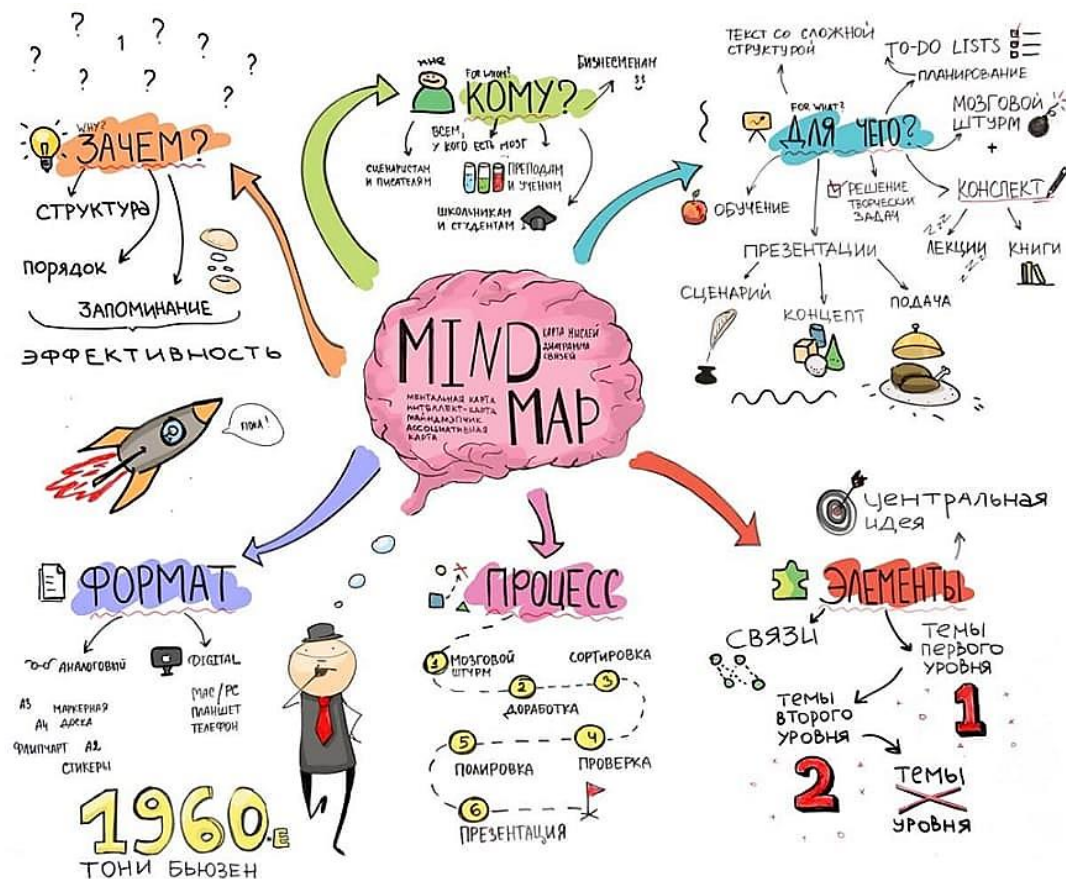 ? ? 1 ? ? ? ? ? ? ?
WHY?
ЗАЧЕМ?
СТРУКТУРА
ПОРЯДОК
ЗАПОМИНАНИЕ
ЭФФЕКТИВНОСТЬ
ПОКА!
МНЕ
FOR WHOM?
КОМУ?
БИЗНЕСМЕНАМ
ВСЕМ,
У КОГО ЕСТЬ МОЗГ
СЦЕНАРИСТАМ
И ПИСАТЕЛЯМ
ПРЕПОДАМ
И УЧЕНЫМ
ШКОЛЬНИКАМ
И СТУДЕНТАМ
ТЕКСТ СО СЛОЖНОЙ
СТРУКТУРОЙ
TO-DO LISTS
ПЛАНИРОВАНИЕ
FOR WHAT?
ДЛЯ ЧЕГО?
МОЗГОВОЙ
ШТУРМ
+
КОНСПЕКТ
ЛЕКЦИИ
КНИГИ
ОБУЧЕНИЕ
РЕШЕНИЕ
ТВОРЧЕСКИХ
ЗАДАЧ
ПРЕЗЕНТАЦИИ
СЦЕНАРИЙ
КОНЦЕПТ
ПОДАЧА
MIND
КАРТА МЫСЛЕЙ
ДИАГРАММА
СВЯЗЕЙ
MAP
МЕНТАЛЬНАЯ КАРТА
ИНТЕЛЛЕКТ-КАРТА
МАЙНДМЭПЧИК
АССОЦИАТИВНАЯ
КАРТА
ФОРМАТ
АНАЛОГОВЫЙ
DIGITAL
А3
МАРКЕРНАЯ
ДОСКА
А4
ФЛИПЧАРТ А2
СТИКЕРЫ
MAC/PC
ПЛАНШЕТ
ТЕЛЕФОН
1960.Е
ТОНИ БЬЮЗЕН
ПРОЦЕСС
1 МОЗГОВОЙ
ШТУРМ
2
ДОРАБОТКА
СОРТИРОВКА
3
4
ПРОВЕРКА
5
ПОЛИРОВКА
6
ПРЕЗЕНТАЦИЯ
ЦЕНТРАЛЬНАЯ
ИДЕЯ
ЭЛЕМЕНТЫ
СВЯЗИ
ТЕМЫ
ПЕРВОГО
УРОВНЯ
1
ТЕМЫ
ВТОРОГО
УРОВНЯ
2
ТЕМЫ
X
УРОВНЯ